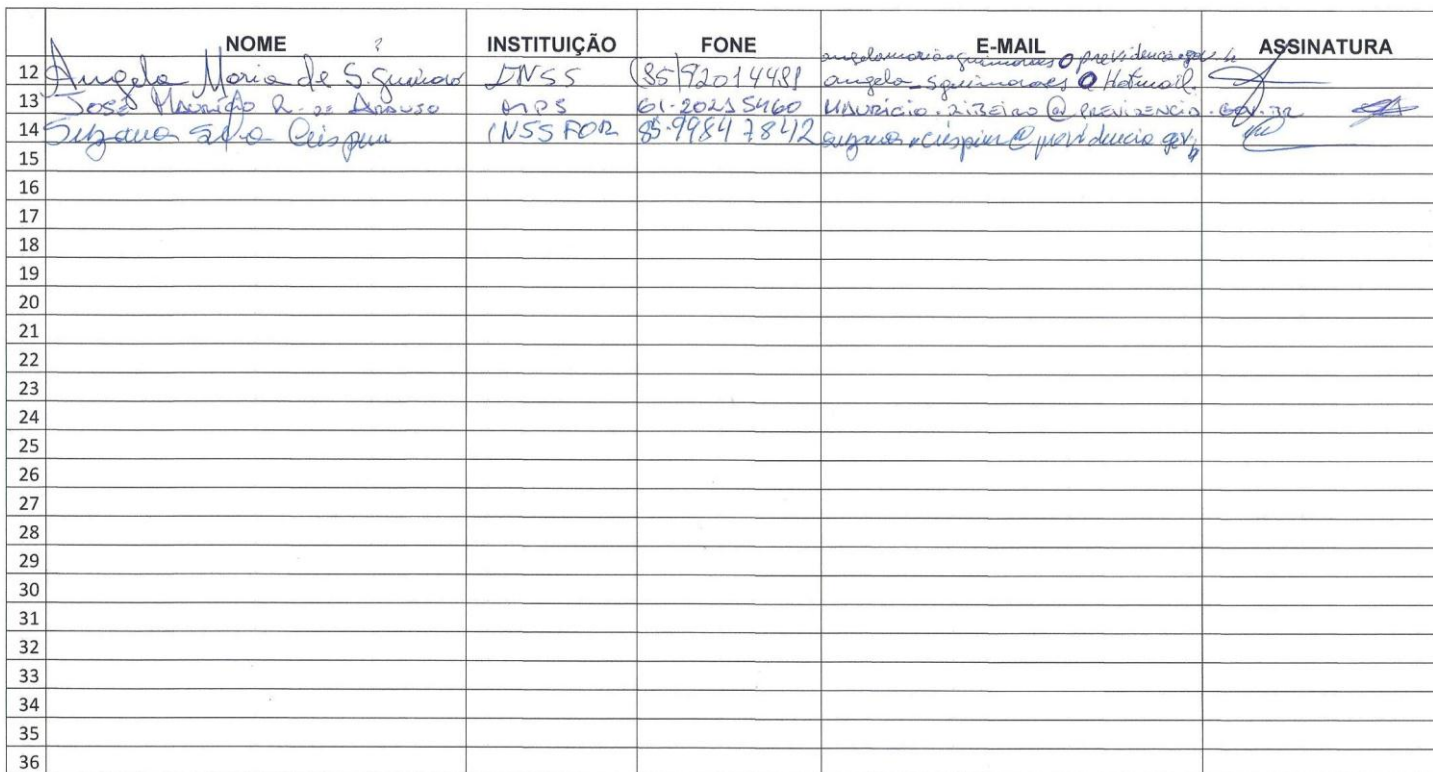 NOME INSTITUIÇÃO FONE E-MAIL ASSINATURA
angelamaria.guimaraes@previdencia.gov.br
12 Angela Maria de S. Guimarães INSS (85) 92014481 angela_sguimaraes@Hotmail.
13 JOSÉ MAURÍCIO R. DE ARAUJO MPS 61-20215460 MAURICIO.RIBEIRO@PREVIDENCIA.GOV.BR
14 Suzana Silva Crispim INSS FOR 85-99847842 suzana.crispim@previdencia.gov.br
15
16
17
18
19
20
21
22
23
24
25
26
27
28
29
30
31
32
33
34
35
36